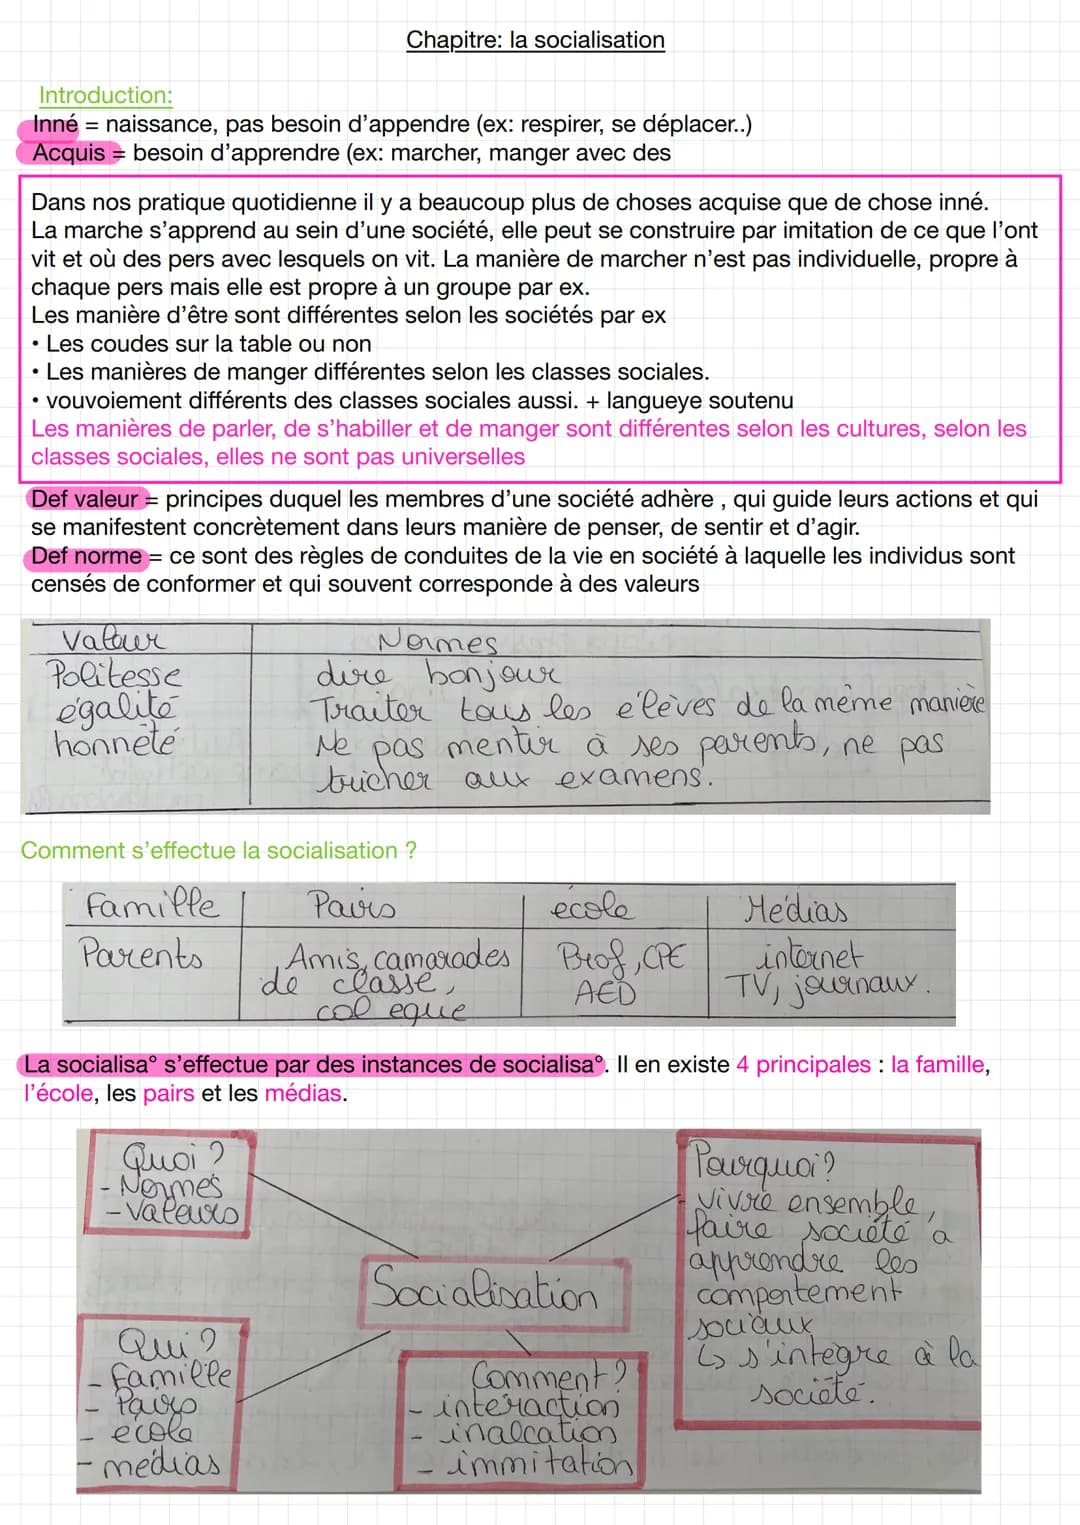 Chapitre: la socialisation
Introduction:
Inné = naissance, pas besoin d'appendre (ex: respirer, se déplacer..)
Acquis = besoin d'apprendre (ex: marcher, manger avec des
Dans nos pratique quotidienne il y a beaucoup plus de choses acquise que de chose inné.
La marche s'apprend au sein d'une société, elle peut se construire par imitation de ce que l'ont
vit et où des pers avec lesquels on vit. La manière de marcher n'est pas individuelle, propre à
chaque pers mais elle est propre à un groupe par ex.
Les manière d'être sont différentes selon les sociétés par ex
• Les coudes sur la table ou non
• Les manières de manger différentes selon les classes sociales.
• vouvoiement différents des classes sociales aussi. + langueye soutenu
Les manières de parler, de s'habiller et de manger sont différentes selon les cultures, selon les
classes sociales, elles ne sont pas universelles
Def valeur = principes duquel les membres d'une société adhère , qui guide leurs actions et qui
se manifestent concrètement dans leurs manière de penser, de sentir et d'agir.
Def norme = ce sont des règles de conduites de la vie en société à laquelle les individus sont
censés de conformer et qui souvent corresponde à des valeurs
Valeur Normes
Politesse dire bonjour
égalité Traiter tous les élèves de la même manière
honnêté Ne pas mentir à ses parents, ne pas
tricher aux examens.
Comment s'effectue la socialisation ?
Famille Pairs école Médias
Parents Amis, camarades Prof, CPE internet
de classe, AED TV, journaux.
collegue
La socialisa° s'effectue par des instances de socialisa°. Il en existe 4 principales : la famille,
l'école, les pairs et les médias.
Quoi ?
- Normes
- Valeurs
Pourquoi ?
- vivre ensemble,
faire société à
apprendre les
comportement
sociaux
↳ s'intègre à la
société.
Socialisation
Qui ?
- famille
- Pairs
- école
- médias
Comment ?
- interaction
- inalcation
- immitation